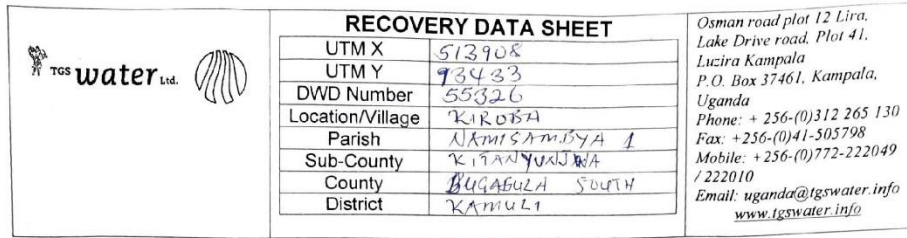 TGS water Ltd.
RECOVERY DATA SHEET
UTM X 513908
UTM Y 93433
DWD Number 55326
Location/Village KIROBA
Parish NAMISAMBYA 1
Sub-County
County BUGABULA SOUTH
District KAMULI
Osman road plot 12 Lira,
Lake Drive road, Plot 41,
Luzira Kampala
P.O. Box 37461, Kampala,
Uganda
Phone: + 256-(0)312 265 130
Fax: +256-(0)41-505798
Mobile: +256-(0)772-222049
/ 222010
Email: uganda@tgswater.info
www.tgswater.info